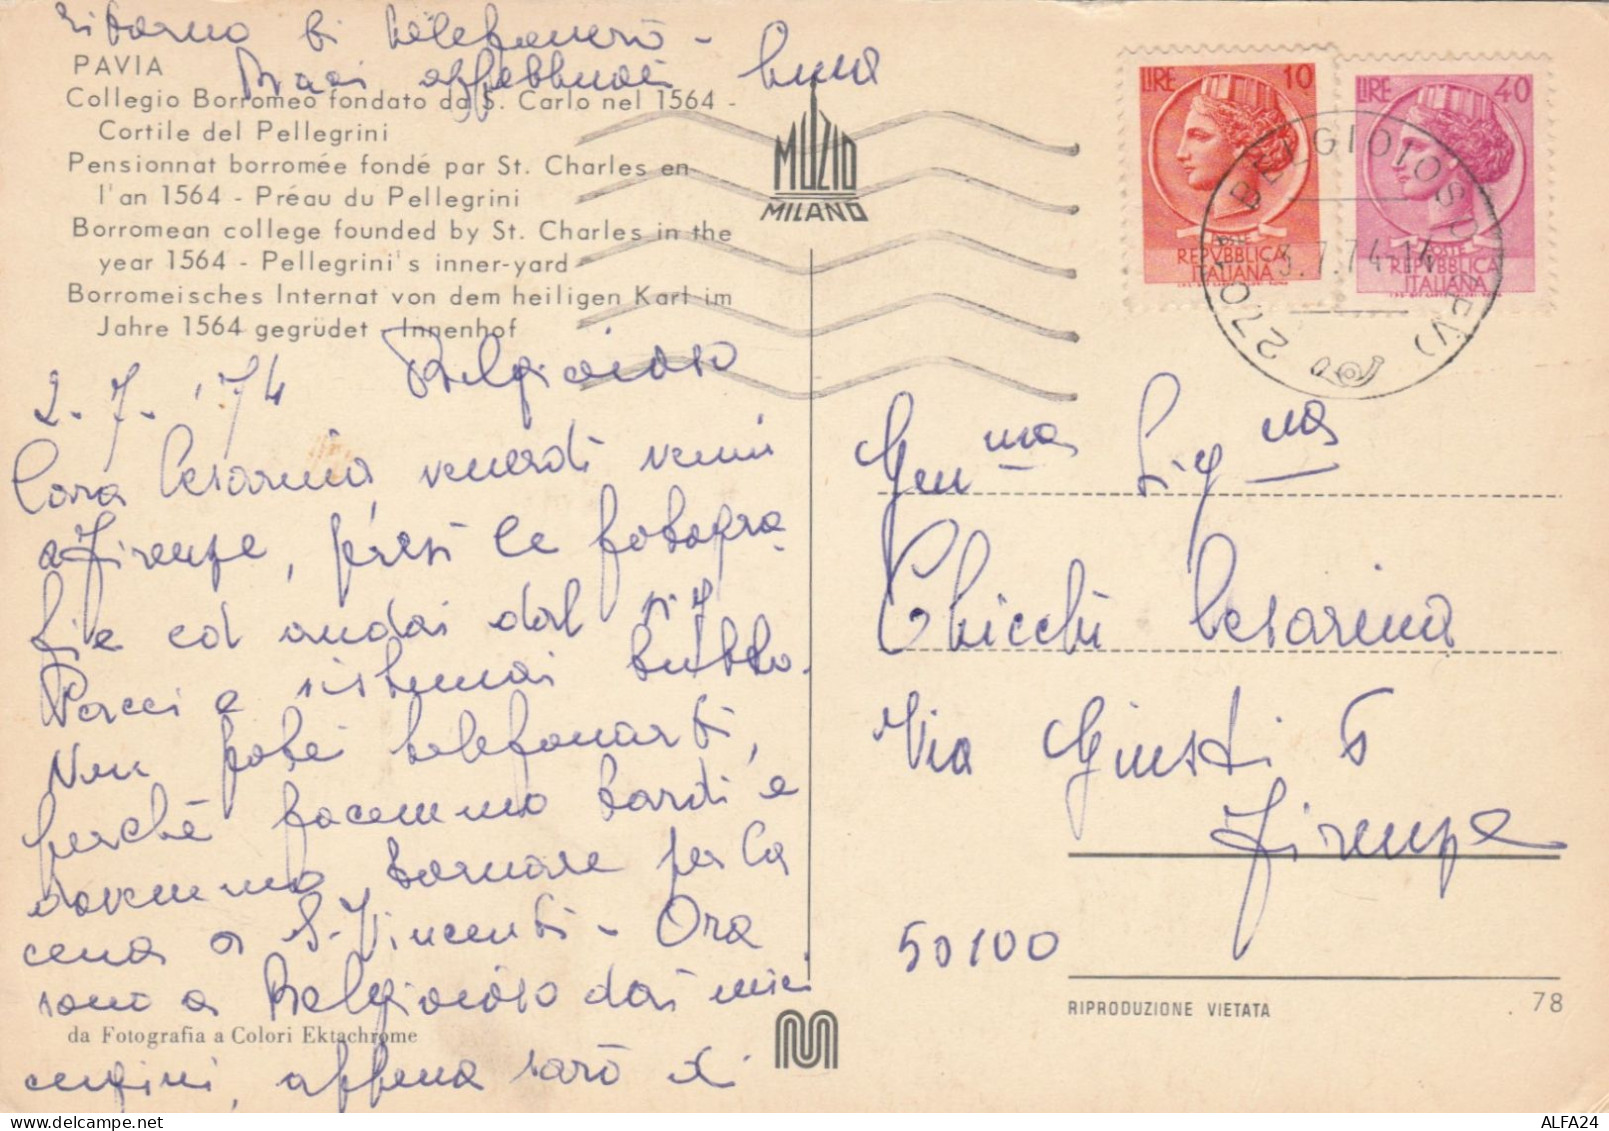 ritorno ti telefonerò -
Baci affettuosi Luca
PAVIA
Collegio Borromeo fondato da S. Carlo nel 1564 -
Cortile del Pellegrini
Pensionnat borromée fondé par St. Charles en
l'an 1564 - Préau du Pellegrini
Borromean college founded by St. Charles in the
year 1564 - Pellegrini's inner-yard
Borromeisches Internat von dem heiligen Karl im
Jahre 1564 gegrüdet - Innenhof
Belgioioso
2-7-'74
Cara Cesarina, venerdì venni
a Firenze, presi le fotogra
fie ed andai dal sig
Porcci e sistemai tutto.
Non potei telefonarti,
perchè facemmo tardi e
dovemmo tornare per la
cena a S. Vincenti - Ora
sono a Belgioioso dai miei
da Fotografia a Colori Ektachrome
cugini, appena sarò di
MUZIO
MILANO
LIRE 10
POSTE
REPVBBLICA
ITALIANA
LIRE 40
POSTE
REPVBBLICA
ITALIANA
27O BELGIOIOSO
3.7.74-14
Gen ma Sig na
Chicchi Cesarina
Via Giusti 6
Firenze
50100
RIPRODUZIONE VIETATA
78
ALFA24